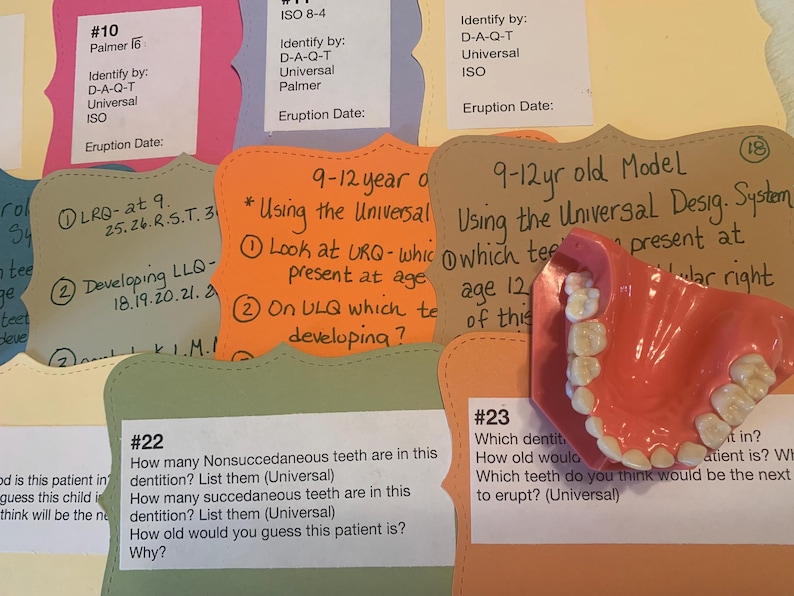 #10
Palmer 6
Identify by:
D-A-Q-T
Universal
ISO
Eruption Date:
ISO 8-4
Identify by:
D-A-Q-T
Universal
Palmer
Eruption Date:
Identify by:
D-A-Q-T
Universal
ISO
Eruption Date:
① LRQ- at 9.
25.26.R.S.T. 3
② Developing LLQ-
18.19.20.21.
9-12 year o
*Using the Universal
① Look at URQ - whic
present at age
② On ULQ which te
developing?
9-12 yr old Model
18
Using the Universal Desig. System
① which tee present at
age 12 ular right
of this
od is this patient in?
guess this child i
think will be the ne
#22
How many Nonsuccedaneous teeth are in this
dentition? List them (Universal)
How many succedaneous teeth are in this
dentition? List them (Universal)
How old would you guess this patient is?
Why?
#23
Which dentit t in?
How old would patient is? Wh
Which teeth do you think would be the next
to erupt? (Universal)